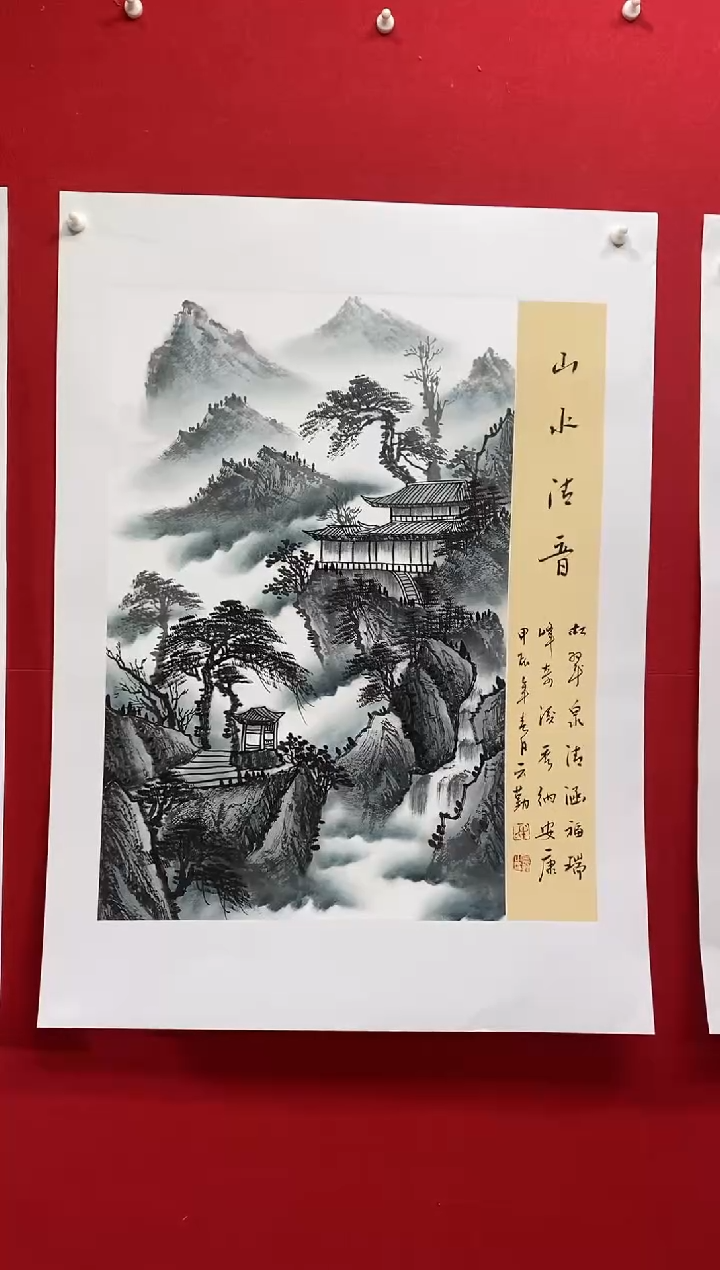 山水清音
松翠泉清涵福瑞
峰奇凌秀纳安康
甲辰年春月云勤